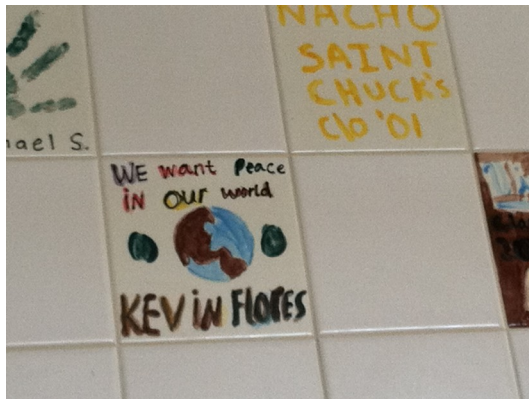 NACHO
SAINT
CHUCK'S
C/O '01
ael S.
WE want Peace
in our world
KEViN FLORES